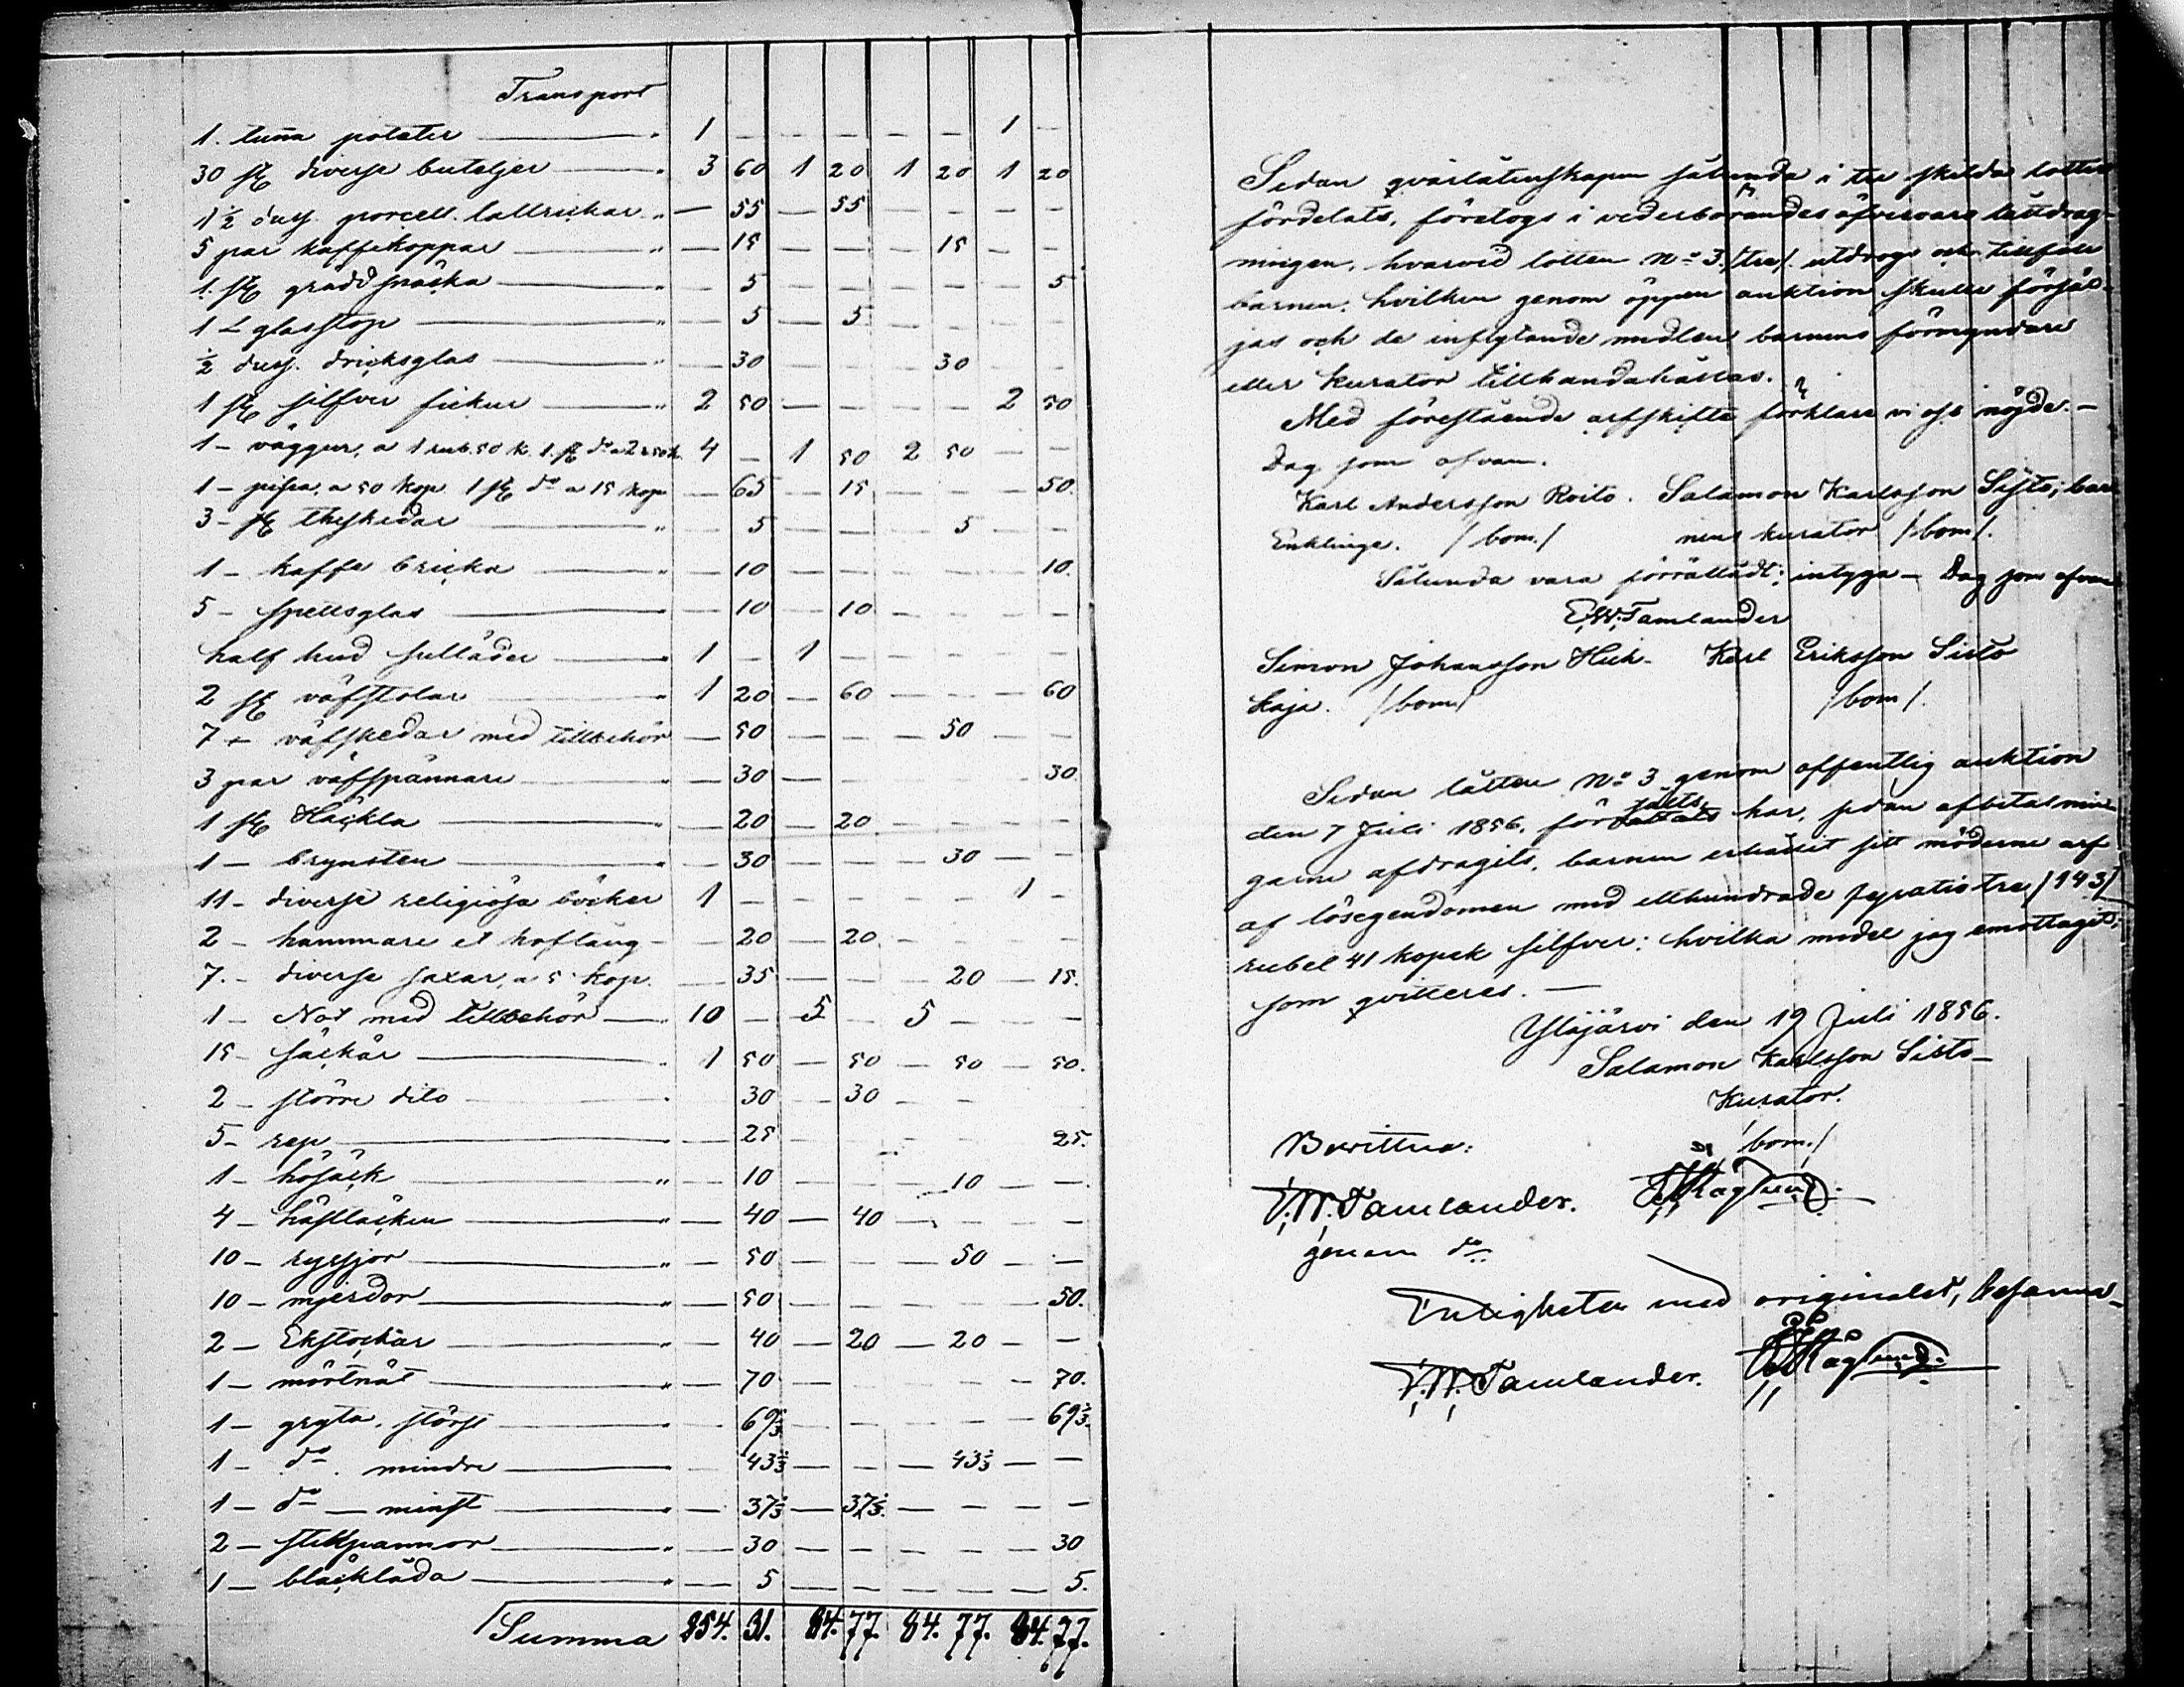 Transport
1. tunna potater — " 1 — — — — — 1 —
30 st diverse buteljer — " 3 60 1 20 1 20 1 20
1½ duss. porcell. talrickar " — 55 — 55 — — — —
5 par kaffekoppar — " — 15 — — — 15 — —
1. st gräddsnäcka — " — 5 — — — — — 5
1 L glasstop — " — 5 — 5 — — — —
½ duss. dricksglas — " — 30 — — — 30 — —
1 st silfver fickur — " 2 50 — — — — 2 50
1 – väggur, a 1 rub. 50 k. 1. st do a 2 r 50 k. 4 — 1 50 2 50 — —
1 – a 50 kop 1 st do a 15 kop — 65 — 15 — — — 50.
3 – st theskedar — " — 5 — — — 5 — —
1 – kaffe bricka — " — 10 — — — — — 10.
5 – spettsglas — " — 10 — 10 — — — —
half hud sulläder — " 1 — 1 — — — — —
2 st väfstolar — " 1 20 — 60 — — — 60
7 – väfskedar med tillbehör — 50 — — — 50 — —
3 par väfspännare — " — 30 — — — — — 30.
1 st Häckla — " — 20 — 20 — — — —
1 – brynsten — " — 30 — — — 30 — —
11 – diverse religiösa böcker 1 — — — — — 1 –
2 – hammare et hoftång – — 20 — 20 — — — —
7. – diverse saxar, a 5 kop. — 35 — — — 20 — 15.
1 – Not med tillbehör — " 10 — 5 — 5 — — —
15 – säckar — " 1 50 — 50 — 50 — 50.
2 – större dito — " 30 — 30 — —
5 – rep — " — 25 — — — — 25.
1 – hösäck — " — 10 — — — 10 — —
4 – hästtäcken — " — 40 — 40 — — — —
10 – ryssjor — " — 50 — — — 50 — —
10 – mjerdor — " — 50 — — — — — 50.
2 – Ekstockar — " — 40 — 20 — 20 – —
1 – mörtnät — " — 70 — — — — — 70.
1 – gryta, störst — " — 69⅔ — — — — — 69⅔.
1 – do. mindre — " — 43⅔ — — — 43⅔ — —
1 – do — minst — " — 37⅔ — 37⅔. — — — —
2 – stekpannor — " — 30 — — — — — 30
1 – bläcklåda — " — 5 — — — — — 5.
Summa 254. 31. 84. 77. 84. 77. 84. 77.
Sedan qvarlåtenskapen sålunda i tre skilda lotter
fördelats, företogs i vederbörandes öfvervaro lottdrag-
ningen, hvarvid lotten No 3. /tre/. utdrogs och tillföll
barnen: hvilken genom öppen auktion skulle försäl-
jas och de inflytande medlen barnens förmyndare
eller kurator tillhandahållas.
Med förestående arfskifte förklare vi oss nöjde. –
Dag som ofvan.
Karl Andersson Roito. Salamon Karlsson Sisto; bar-
Enklinge. /bom./ nens kurator /bom/.
Sålunda vara förrättadt; intyga – Dag som ofvan
E.W. Tamlander
Simon Johansson Huh- Karl Eriksson Sisto
kaja. /bom/ /bom/.
Sedan lotten No 3 genom offentlig auktion
den 7 Juli 1856, försålts har, sedan afbetalnin-
garne afdragits, barnen erhållit sitt möderne arf
af lösegendomen med etthundrade fyratiotre /143/
rubel 41 kopek silfver: hvilka medel jag emottagit;
som qvitteres. —
Ylöjärvi den 19 Juli 1856.
Salamon Karlsson Sisto –
Kurator.
/bom./
Bevittna:
E.W. Tamlander. Häglund.
genom do
Enligheten med originalet, besanna –
E.W. Tamlander. Häglund.